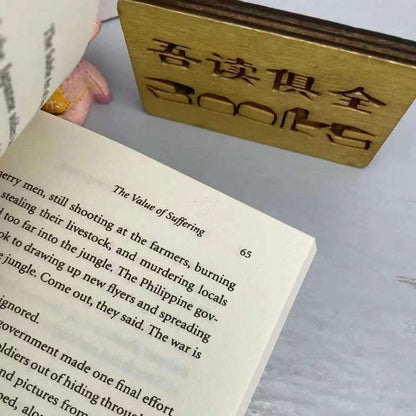 吾读俱全
Books
The Value of Suffering
65
merry men, still shooting at the farmers, burning
stealing their livestock, and murdering locals
d too far into the jungle. The Philippine gov-
ok to drawing up new flyers and spreading
e jungle. Come out, they said. The war is
ignored.
government made one final effort
oldiers out of hiding throu
and pictures from
ped, alo